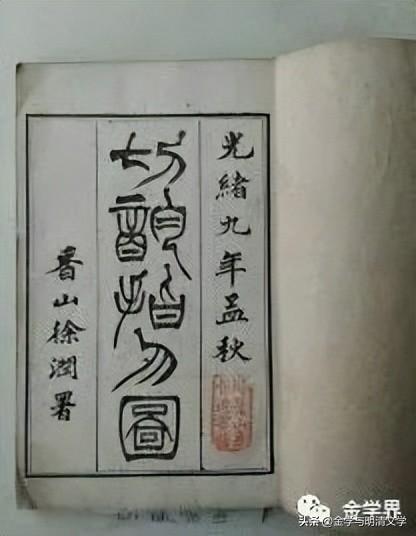 光緒九年孟秋
切韻指掌圖
香山徐潤署
金学界
头条 @金学与明清文学